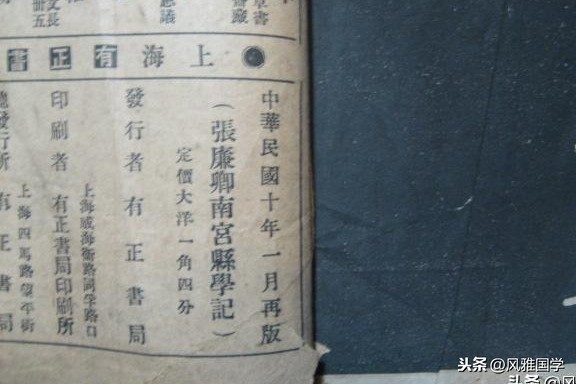 上海有正書
中華民國十年一月再版
（張廉卿南宮縣學記）
定價大洋一角四分
發行者 有正書局
上海威海衛路同孚路口
印刷者 有正書局印刷所
上海四馬路望平街
總發行所 有正書局
头条 @风雅国学